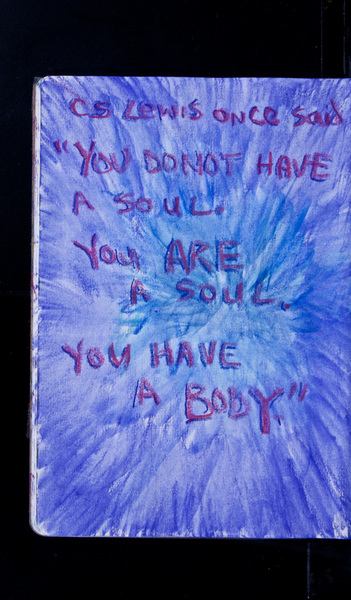 CS Lewis once said
"YOU DO NOT HAVE
A SOUL.
You ARE
A SOUL.
YOU HAVE
A BODY."